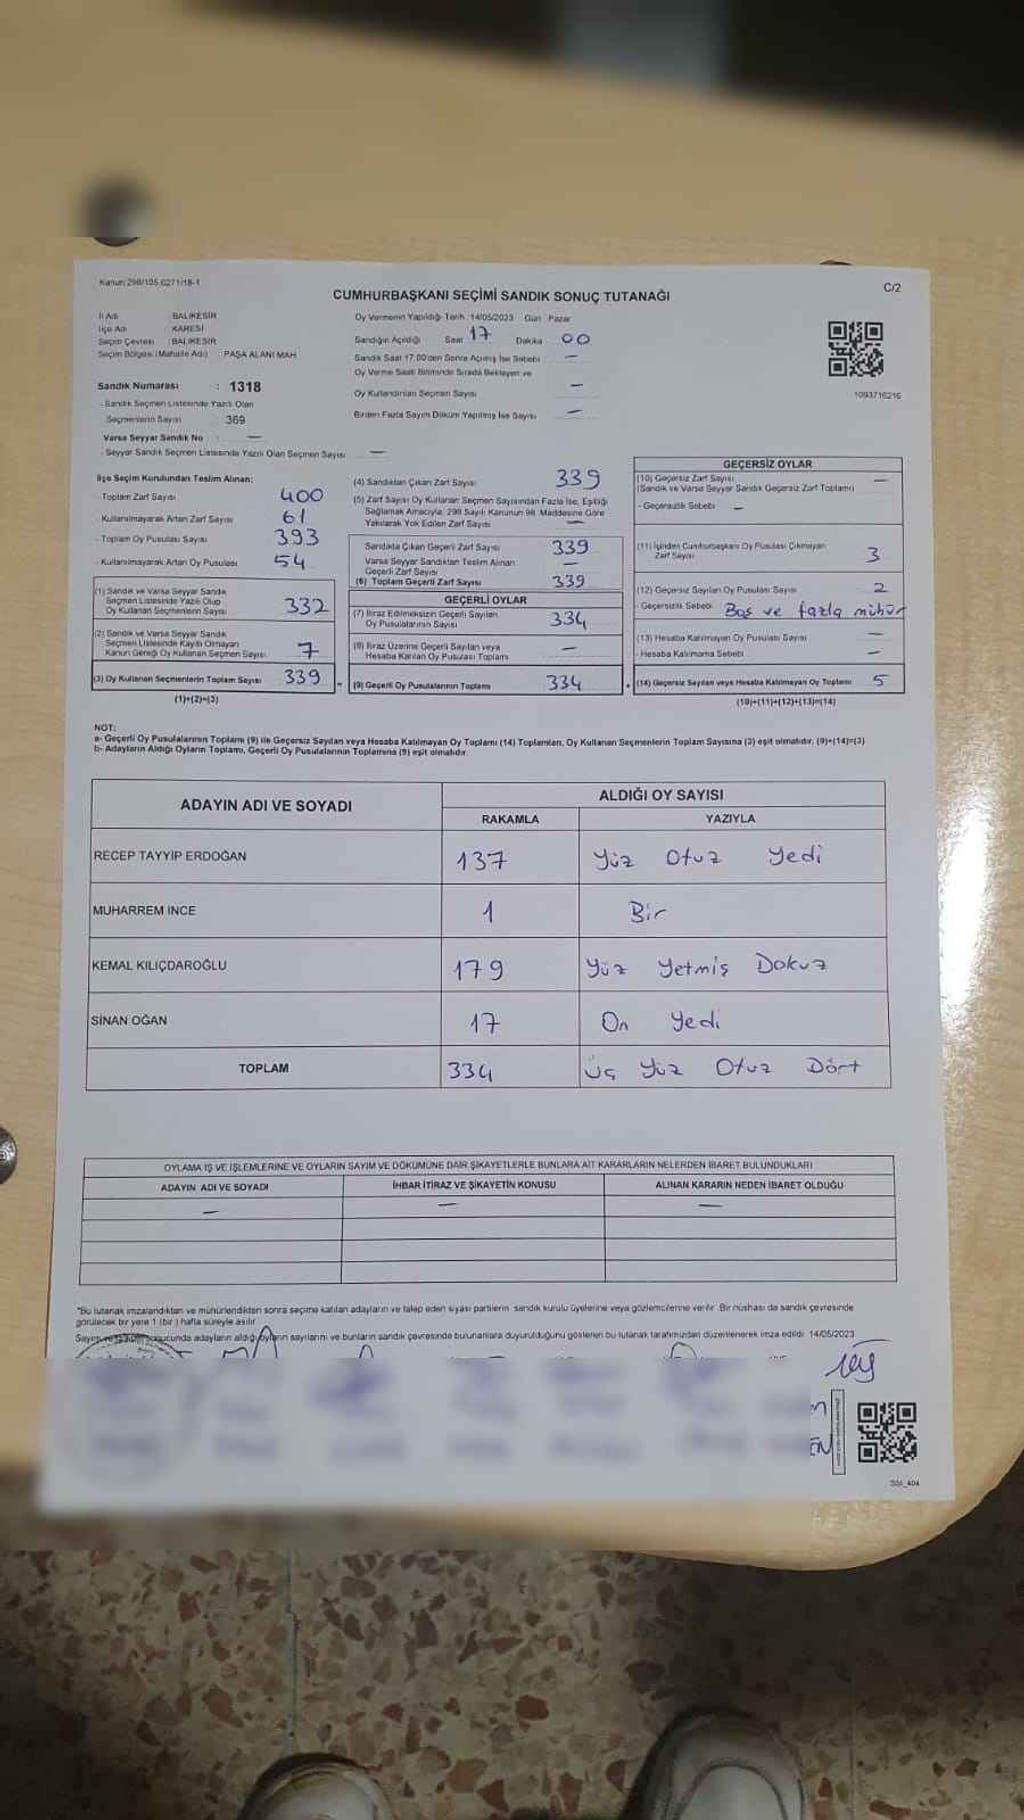 Kanun 298/105.6271/18-1
C/2
CUMHURBAŞKANI SEÇİMİ SANDIK SONUÇ TUTANAĞI
İl Adı BALIKESİR
İlçe Adı KARESİ
Seçim Çevresi : BALIKESİR
Seçim Bölgesi (Mahalle Adı) PAŞA ALANI MAH
Sandık Numarası : 1318
- Sandık Seçmen Listesinde Yazılı Olan
Seçmenlerin Sayısı 369
Varsa Seyyar Sandık No : —
- Seyyar Sandık Seçmen Listesinde Yazılı Olan Seçmen Sayısı —
Oy Vermenin Yapıldığı Tarih 14/05/2023 Gün Pazar
Sandığın Açıldığı Saat 17 Dakika 00
Sandık Saat 17:00'den Sonra Açılmış İse Sebebi —
Oy Verme Saati Bitiminde Sırada Bekleyen ve
Oy Kullandırılan Seçmen Sayısı —
Birden Fazla Sayım Döküm Yapılmış İse Sayısı —
1093716216
İlçe Seçim Kurulundan Teslim Alınan;
- Toplam Zarf Sayısı 400
- Kullanılmayarak Artan Zarf Sayısı 61
- Toplam Oy Pusulası Sayısı 393
- Kullanılmayarak Artan Oy Pusulası 54
(1) Sandık ve Varsa Seyyar Sandık
Seçmen Listesinde Yazılı Olup
Oy Kullanan Seçmenlerin Sayısı 332
(2) Sandık ve Varsa Seyyar Sandık
Seçmen Listesinde Kayıtlı Olmayan
Kanun Gereği Oy Kullanan Seçmen Sayısı 7
(3) Oy Kullanan Seçmenlerin Toplam Sayısı 339
(1)+(2)=(3)
(4) Sandıktan Çıkan Zarf Sayısı 339
(5) Zarf Sayısı Oy Kullanan Seçmen Sayısından Fazla İse, Eşitliği
Sağlamak Amacıyla, 298 Sayılı Kanunun 98. Maddesine Göre
Yakılarak Yok Edilen Zarf Sayısı —
Sandıkta Çıkan Geçerli Zarf Sayısı 339
Varsa Seyyar Sandıktan Teslim Alınan
Geçerli Zarf Sayısı —
(6) Toplam Geçerli Zarf Sayısı 339
GEÇERLİ OYLAR
(7) İtiraz Edilmeksizin Geçerli Sayılan
Oy Pusulalarının Sayısı 334
(8) İtiraz Üzerine Geçerli Sayılan veya
Hesaba Katılan Oy Pusulası Toplamı —
= (9) Geçerli Oy Pusulalarının Toplamı 334
GEÇERSİZ OYLAR
(10) Geçersiz Zarf Sayısı —
(Sandık ve Varsa Seyyar Sandık Geçersiz Zarf Toplamı)
- Geçersizlik Sebebi —
(11) İçinden Cumhurbaşkanı Oy Pusulası Çıkmayan
Zarf Sayısı 3
(12) Geçersiz Sayılan Oy Pusulası Sayısı 2
- Geçersizlik Sebebi Boş ve fazla mühür
(13) Hesaba Katılmayan Oy Pusulası Sayısı —
- Hesaba Katılmama Sebebi —
+ (14) Geçersiz Sayılan veya Hesaba Katılmayan Oy Toplamı 5
(10)+(11)+(12)+(13)=(14)
NOT:
a- Geçerli Oy Pusulalarının Toplamı (9) ile Geçersiz Sayılan veya Hesaba Katılmayan Oy Toplamı (14) Toplamları, Oy Kullanan Seçmenlerin Toplam Sayısına (3) eşit olmalıdır. (9)+(14)=(3)
b- Adayların Aldığı Oyların Toplamı, Geçerli Oy Pusulalarının Toplamına (9) eşit olmalıdır.
ADAYIN ADI VE SOYADI ALDIĞI OY SAYISI
RAKAMLA YAZIYLA
RECEP TAYYİP ERDOĞAN 137 Yüz Otuz Yedi
MUHARREM İNCE 1 Bir
KEMAL KILIÇDAROĞLU 179 Yüz Yetmiş Dokuz
SİNAN OĞAN 17 On Yedi
TOPLAM 334 Üç Yüz Otuz Dört
OYLAMA İŞ VE İŞLEMLERİNE VE OYLARIN SAYIM VE DÖKÜMÜNE DAİR ŞİKAYETLERLE BUNLARA AİT KARARLARIN NELERDEN İBARET BULUNDUKLARI
ADAYIN ADI VE SOYADI İHBAR İTİRAZ VE ŞİKAYETİN KONUSU ALINAN KARARIN NEDEN İBARET OLDUĞU
— — —
"Bu tutanak imzalandıktan ve mühürlendikten sonra seçime katılan adayların ve talep eden siyasi partilerin sandık kurulu üyelerine veya gözlemcilerine verilir. Bir nüshası da sandık çevresinde
görülecek bir yere 1 (bir) hafta süreyle asılır
sonucunda adayların aldığı oyların sayılarını ve bunların sandık çevresinde bulunanlara duyurulduğunu gösteren bu tutanak tarafımızdan düzenlenerek imza edildi. 14/05/2023